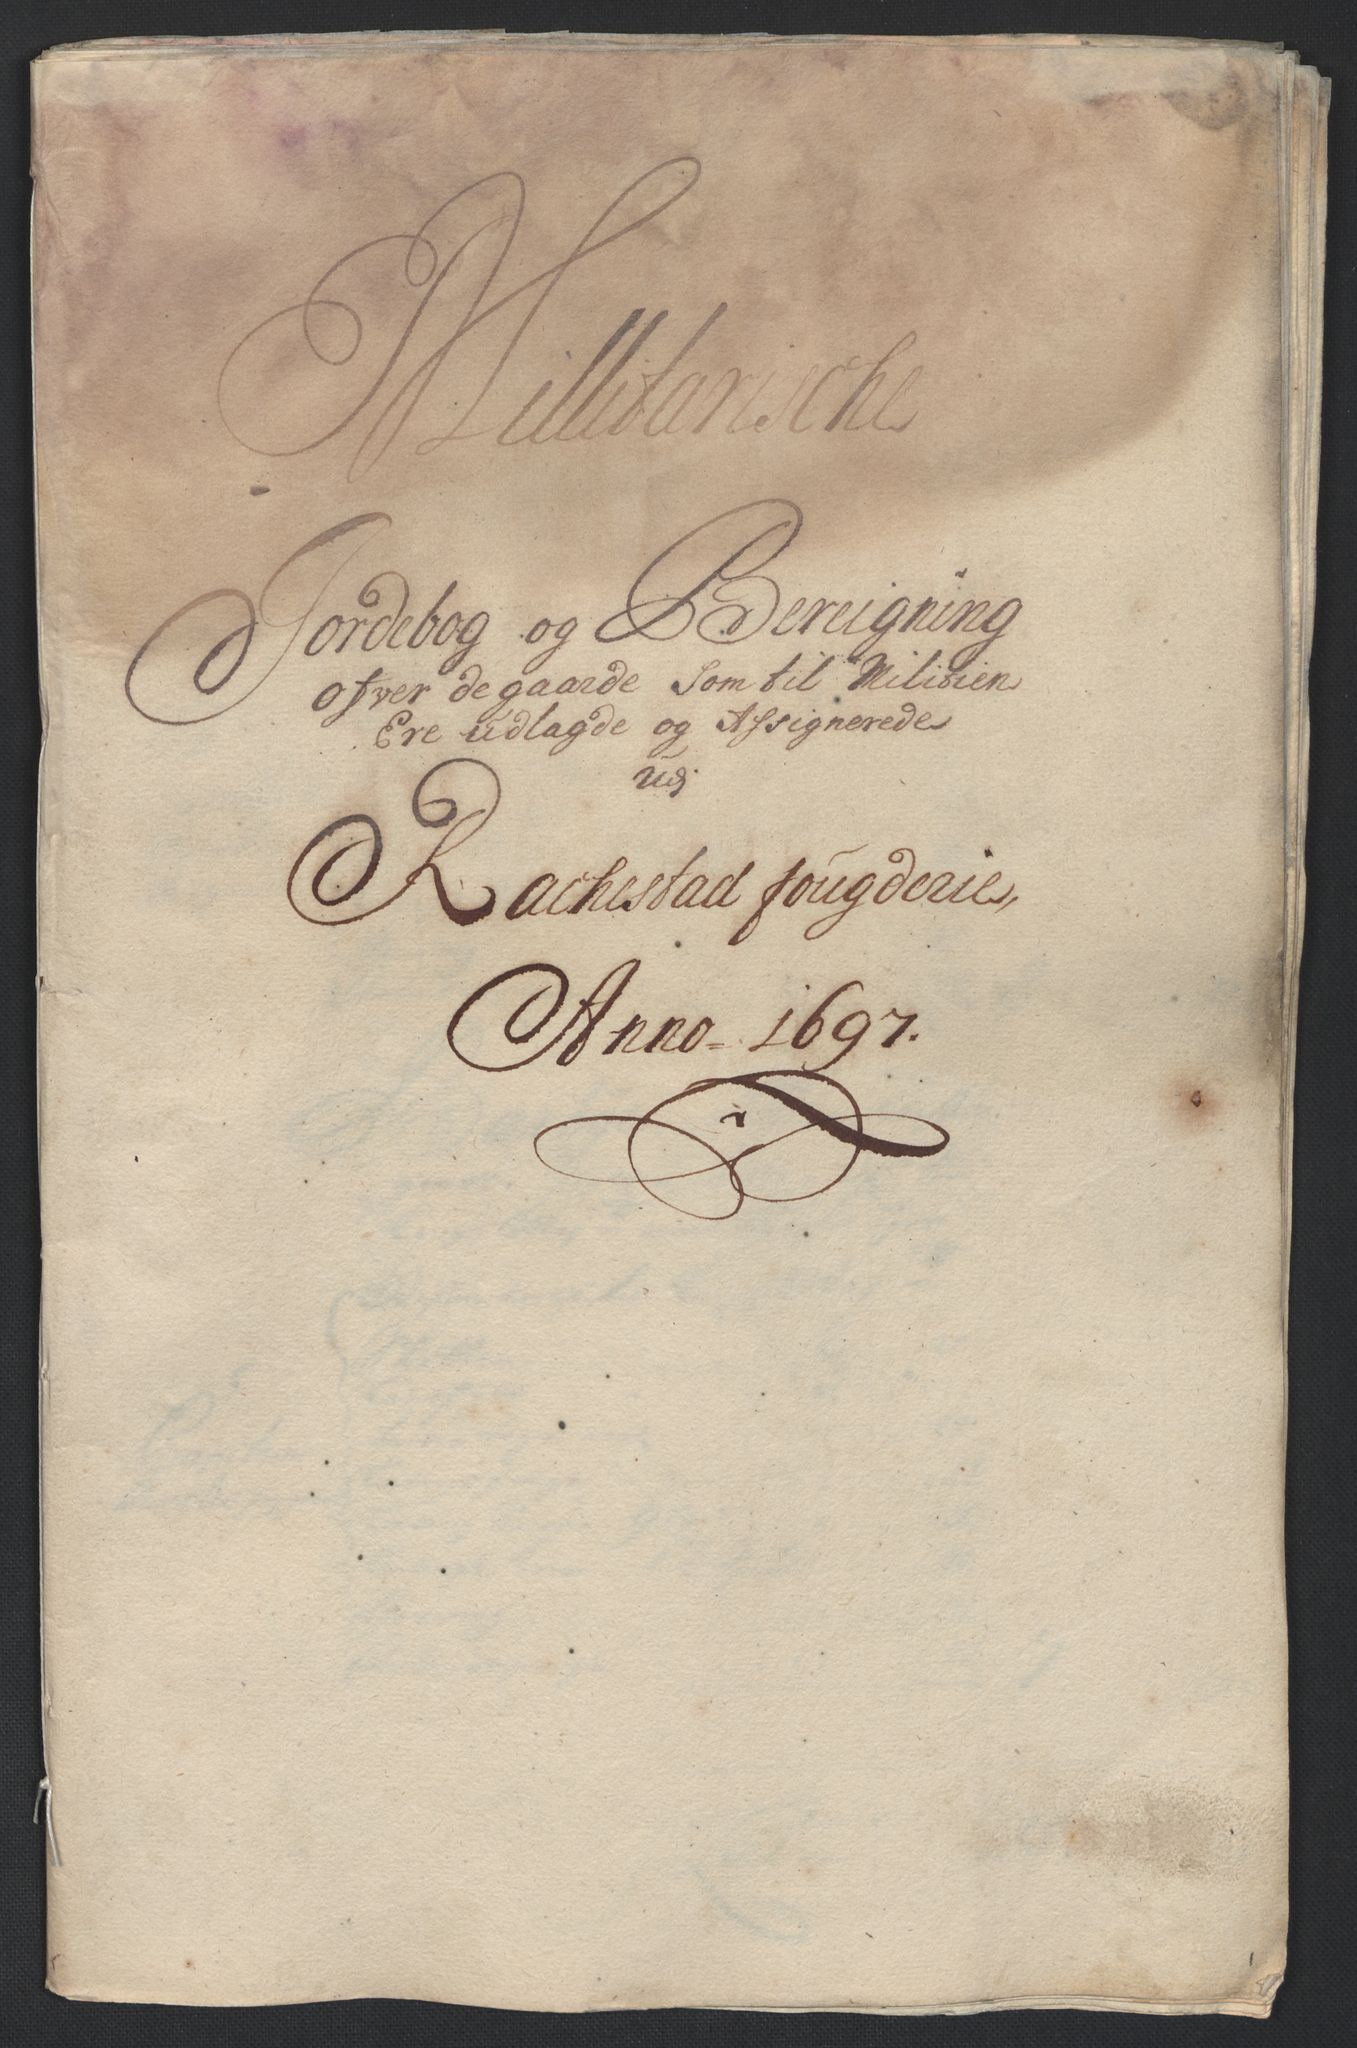 Millitarische
Jordebog og Bereigning
ofver de gaarde som til Militien
Ere udlagde og Assignerede
udj
Rachestad fougderie,
Anno 1697.